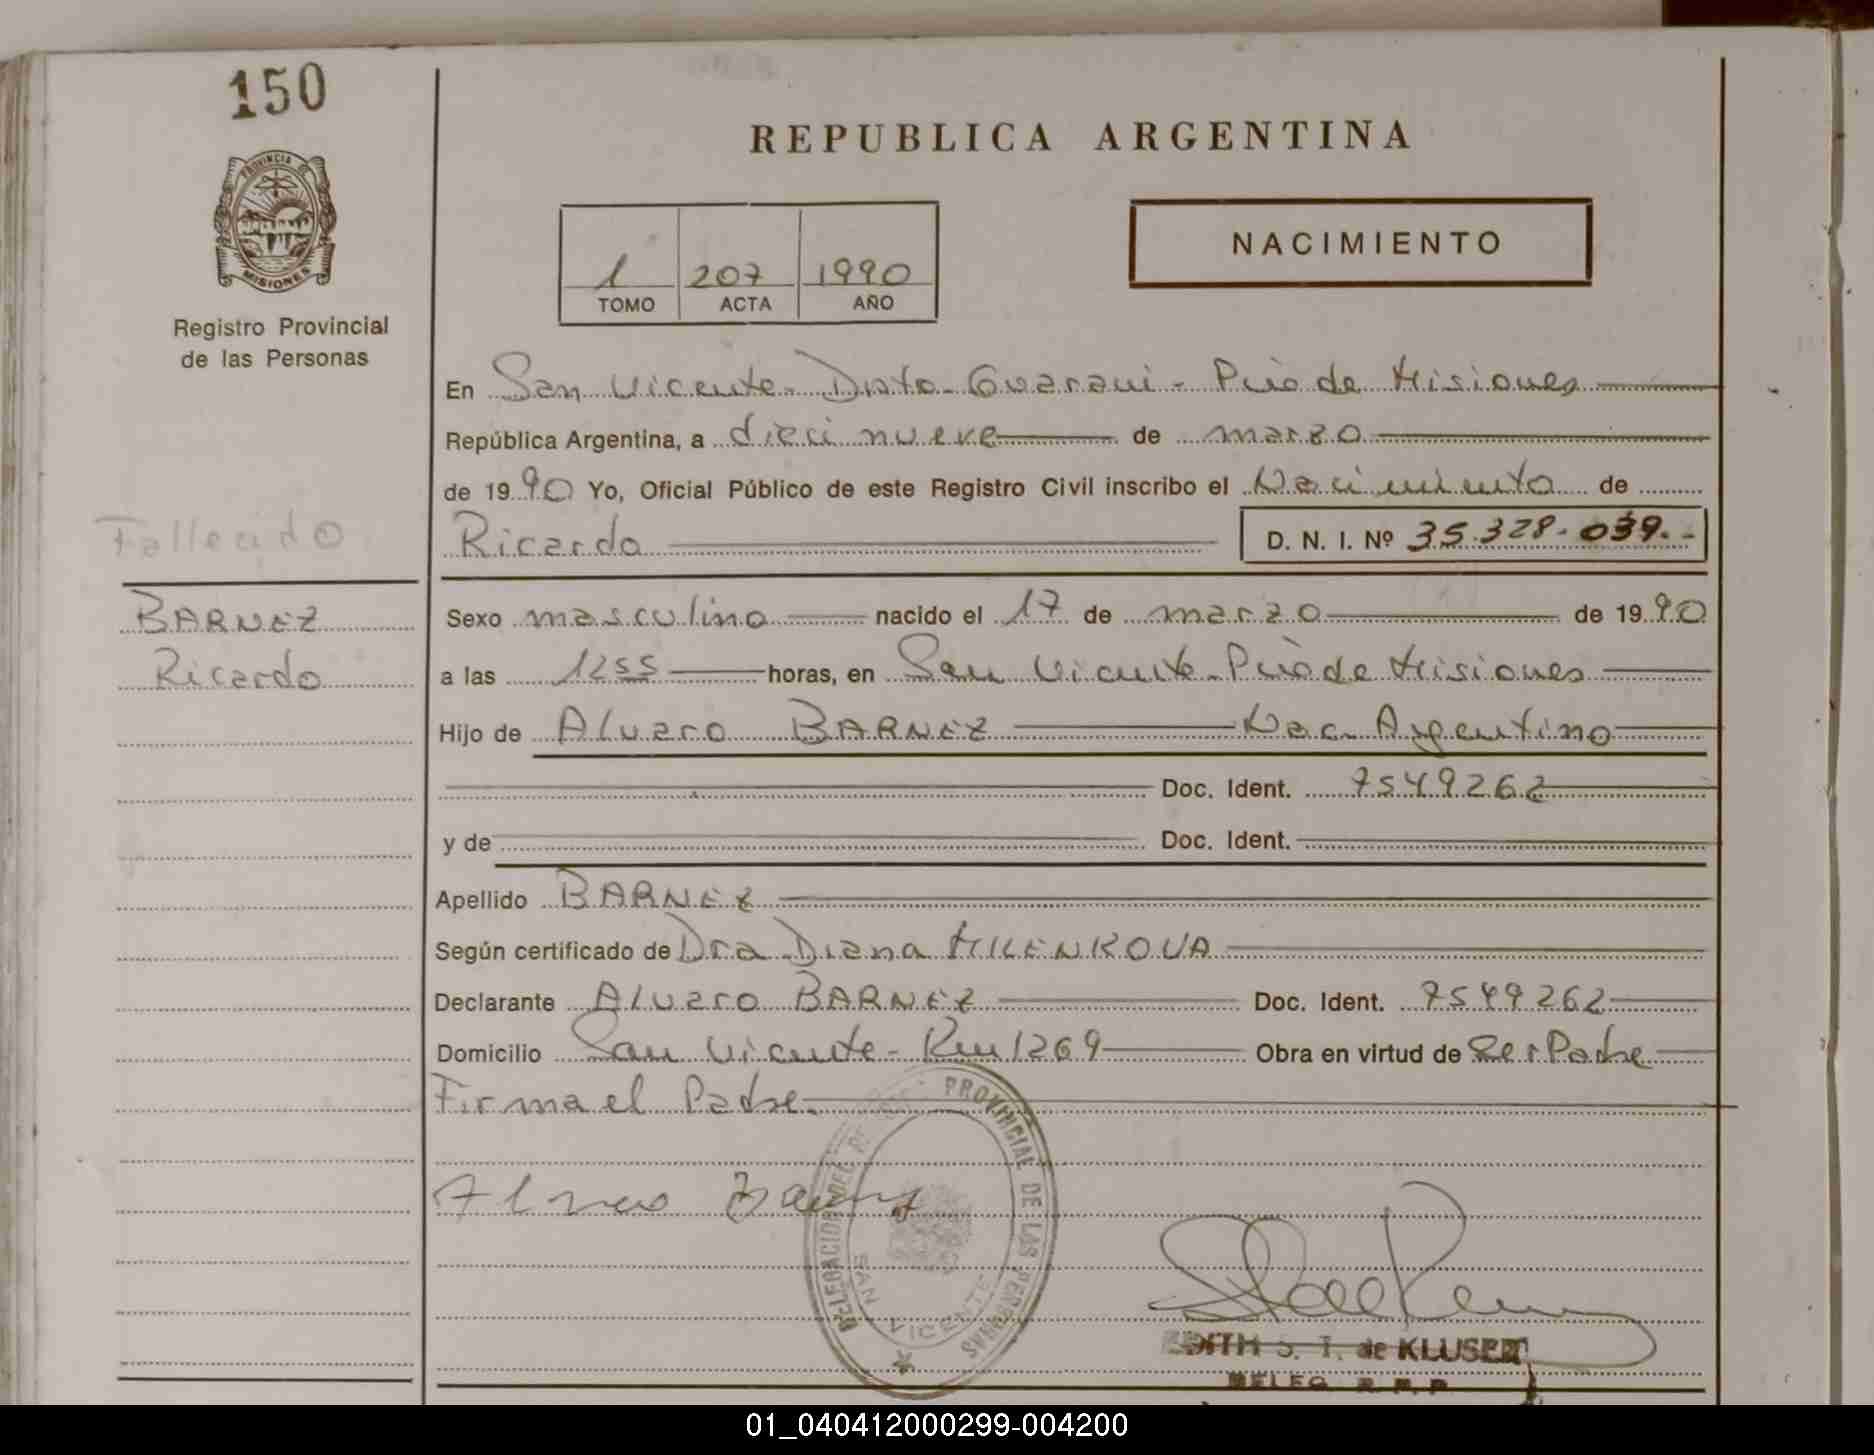 150
PROVINCIA DE
MISIONES
Registro Provincial
de las Personas
REPUBLICA ARGENTINA
1 207 1990
TOMO ACTA AÑO
NACIMIENTO
En San Vicente - Dpto - Guarani - Pcia de Misiones
República Argentina, a dieci nueve de marzo
de 1990 Yo, Oficial Público de este Registro Civil inscribo el Nacimiento de
Fallecido
Ricardo D. N. I. Nº 35.328.039.-
BARNEZ
Ricardo
Sexo masculino nacido el 17 de marzo de 1990
a las 1255 horas, en San Vicente - Pcia de Misiones
Hijo de Alvaro BARNEZ Nac. Argentino
Doc. Ident. 7549262
y de Doc. Ident.
Apellido BARNEZ
Según certificado de Dra Diana MILENKOVA
Declarante Alvaro BARNEZ Doc. Ident. 7549262
Domicilio San Vicente - Km 1269 Obra en virtud de Ser Padre
Firma el Padre.
DELEGACION DEL PROVINCIAL DE LAS PERSONAS
SAN VICENTE
EDITH S. T. de KLUSER
DELEG. R. P. P.
01_040412000299-004200